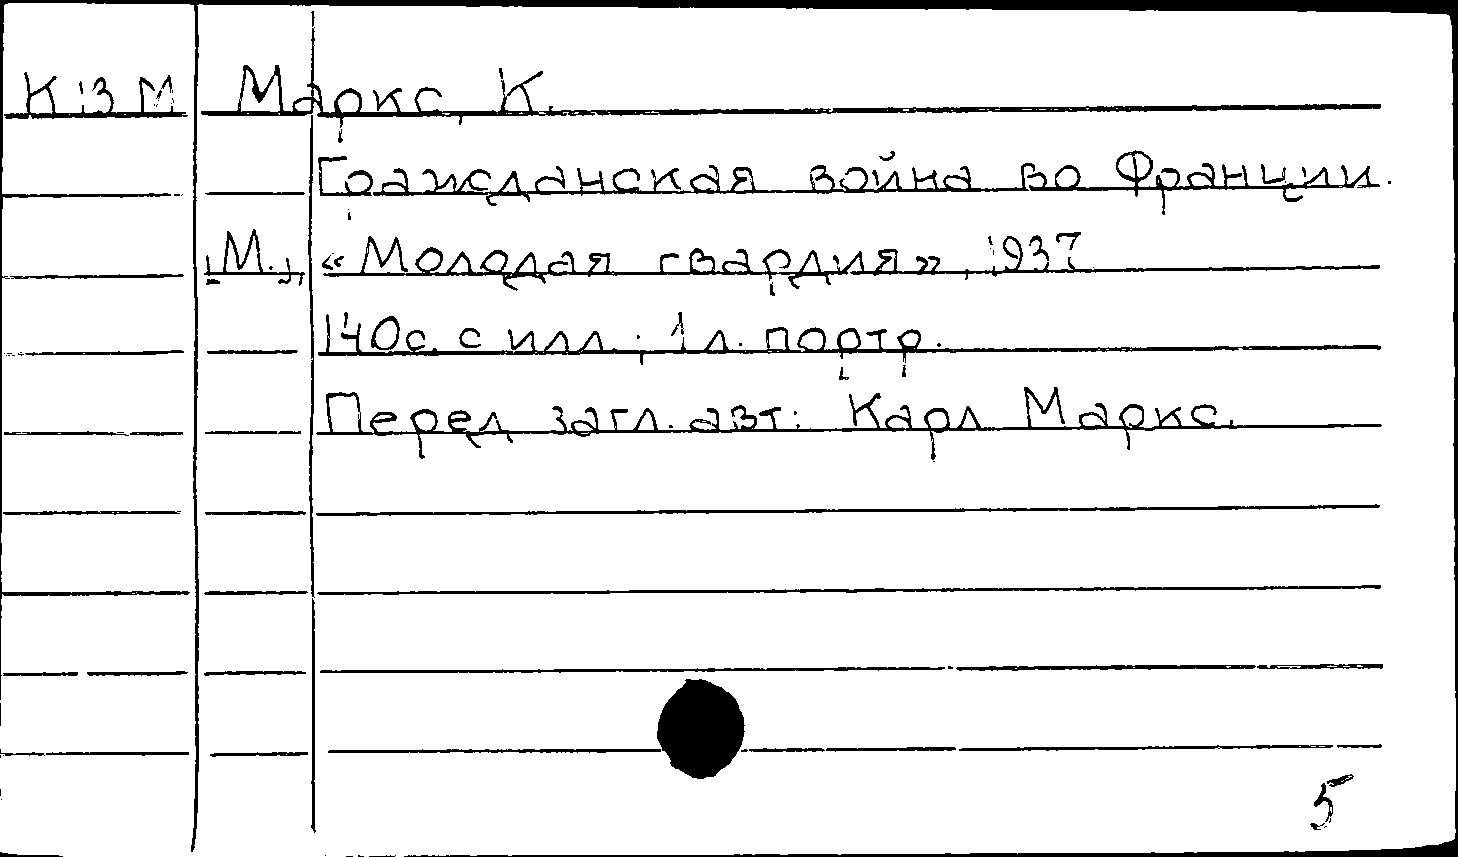 К 13 М Маркс, К.
Гражданская война во Франции.
[М.], «Молодая гвардия», 1937
140с. с илл.; 1 л. портр.
Перед загл. авт: Карл Маркс.
5